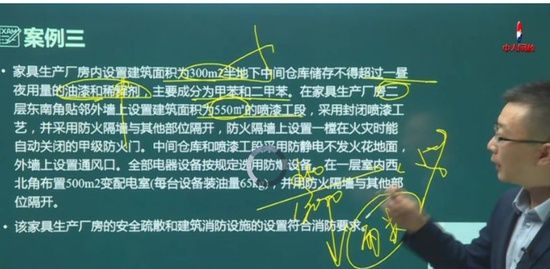 案例三
中大网校
家具生产厂房内设置建筑面积为300m2半地下中间仓库储存不得超过一昼
夜用量的油漆和稀解剂，主要成分为甲苯和二甲苯。在家具生产厂房二
层东南角贴邻外墙上设置建筑面积为550㎡的喷漆工段，采用封闭喷漆工
艺，并采用防火隔墙与其他部位隔开，防火隔墙上设置一樘在火灾时能
自动关闭的甲级防火门。中间仓库和喷漆工段采用防静电不发火花地面，
外墙上设置通风口。全部电器设备按规定选用防爆设备。在一层室内西
北角布置500m2变配电室(每台设备装油量65kg)，并用防火隔墙与其他部
位隔开。
该家具生产厂房的安全疏散和建筑消防设施的设置符合消防要求。